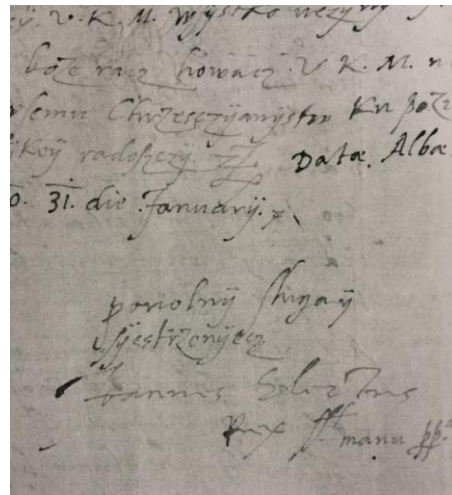 V. K. M. wssystko uczyny
boże racz howacz V K. M. n
wssemu Chrzesczyanystw Ku poż
lkey radosczy. Datæ. Albæ
0. 31. die January.
powolny sluga y
syestrzenyecz
Joannes Electus
Rex manu pp.